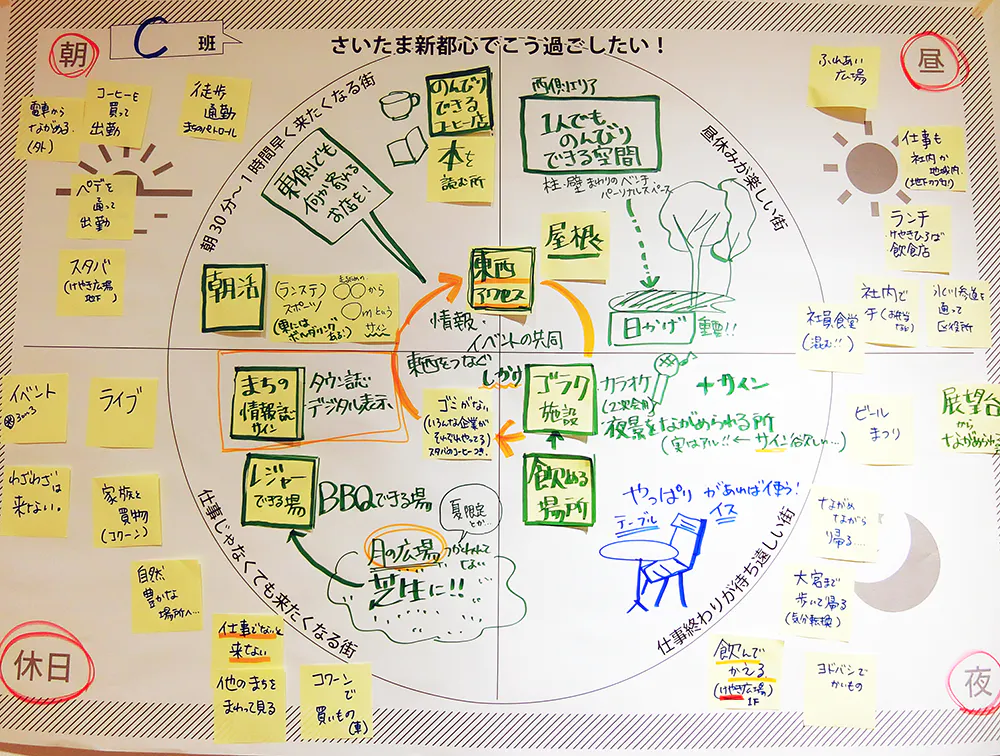 朝
C 班
さいたま新都心でこう過ごしたい！
昼
朝30分～1時間早く来たくなる街
昼休みが楽しい街
仕事じゃなくても来たくなる街
仕事終わりが待ち遠しい街
休日
夜
電車から
ながめる。
(外)
コーヒーを
買って
出勤
徒歩
通勤
まちのパトロール
ペデを
通って
出勤
スタバ
(けやき広場
地下)
のんびり
できる
コーヒー店
本を
読む所
東側にも
何か寄れる
お店を！
朝活
(ランステ)
スポーツ
から
サイン
西側エリア
1人でも、
のんびり
できる空間
柱・壁まわりのベンチ
パーソナルスペース
屋根
東西
アクセス
日かげ
重要!!
ふれあい
広場
仕事も
社内か
地域内。
ランチ
けやきひろば
飲食店
社内で
(お弁当
など)
氷川参道を
通って
区役所
社員食堂
(混む!!)
情報・
イベントの共同
東西をつなぐ
しかけ
まちの
情報誌
サイン
タウン誌
デジタル表示
ゴミがない
(いろんな企業が
それぞれやってる)
スタバのコーヒーつき。
ゴラク
施設
カラオケ
(2次会用)
＋サイン
夜景をながめられる所
(実はアル!!←サイン欲しい…)
飲める
場所
レジャー
できる場
BBQできる場
夏限定
とか…
月の広場
つかわれて
ない
芝生に!!
やっぱり
テーブル
イス
があれば使う！
イベント
ライブ
わざわざは
来ない。
家族と
買物
(コクーン)
自然
豊かな
場所へ…
仕事でないと
来ない
他のまちを
まわって見る
コクーンで
買いもの
(車)
ビール
まつり
展望台
から
ながめられる
ながめ
ながら
帰る…
大宮まで
歩いて帰る
(気分転換)
飲んで
かえる
(けやき広場)
1F
ヨドバシで
かいもの